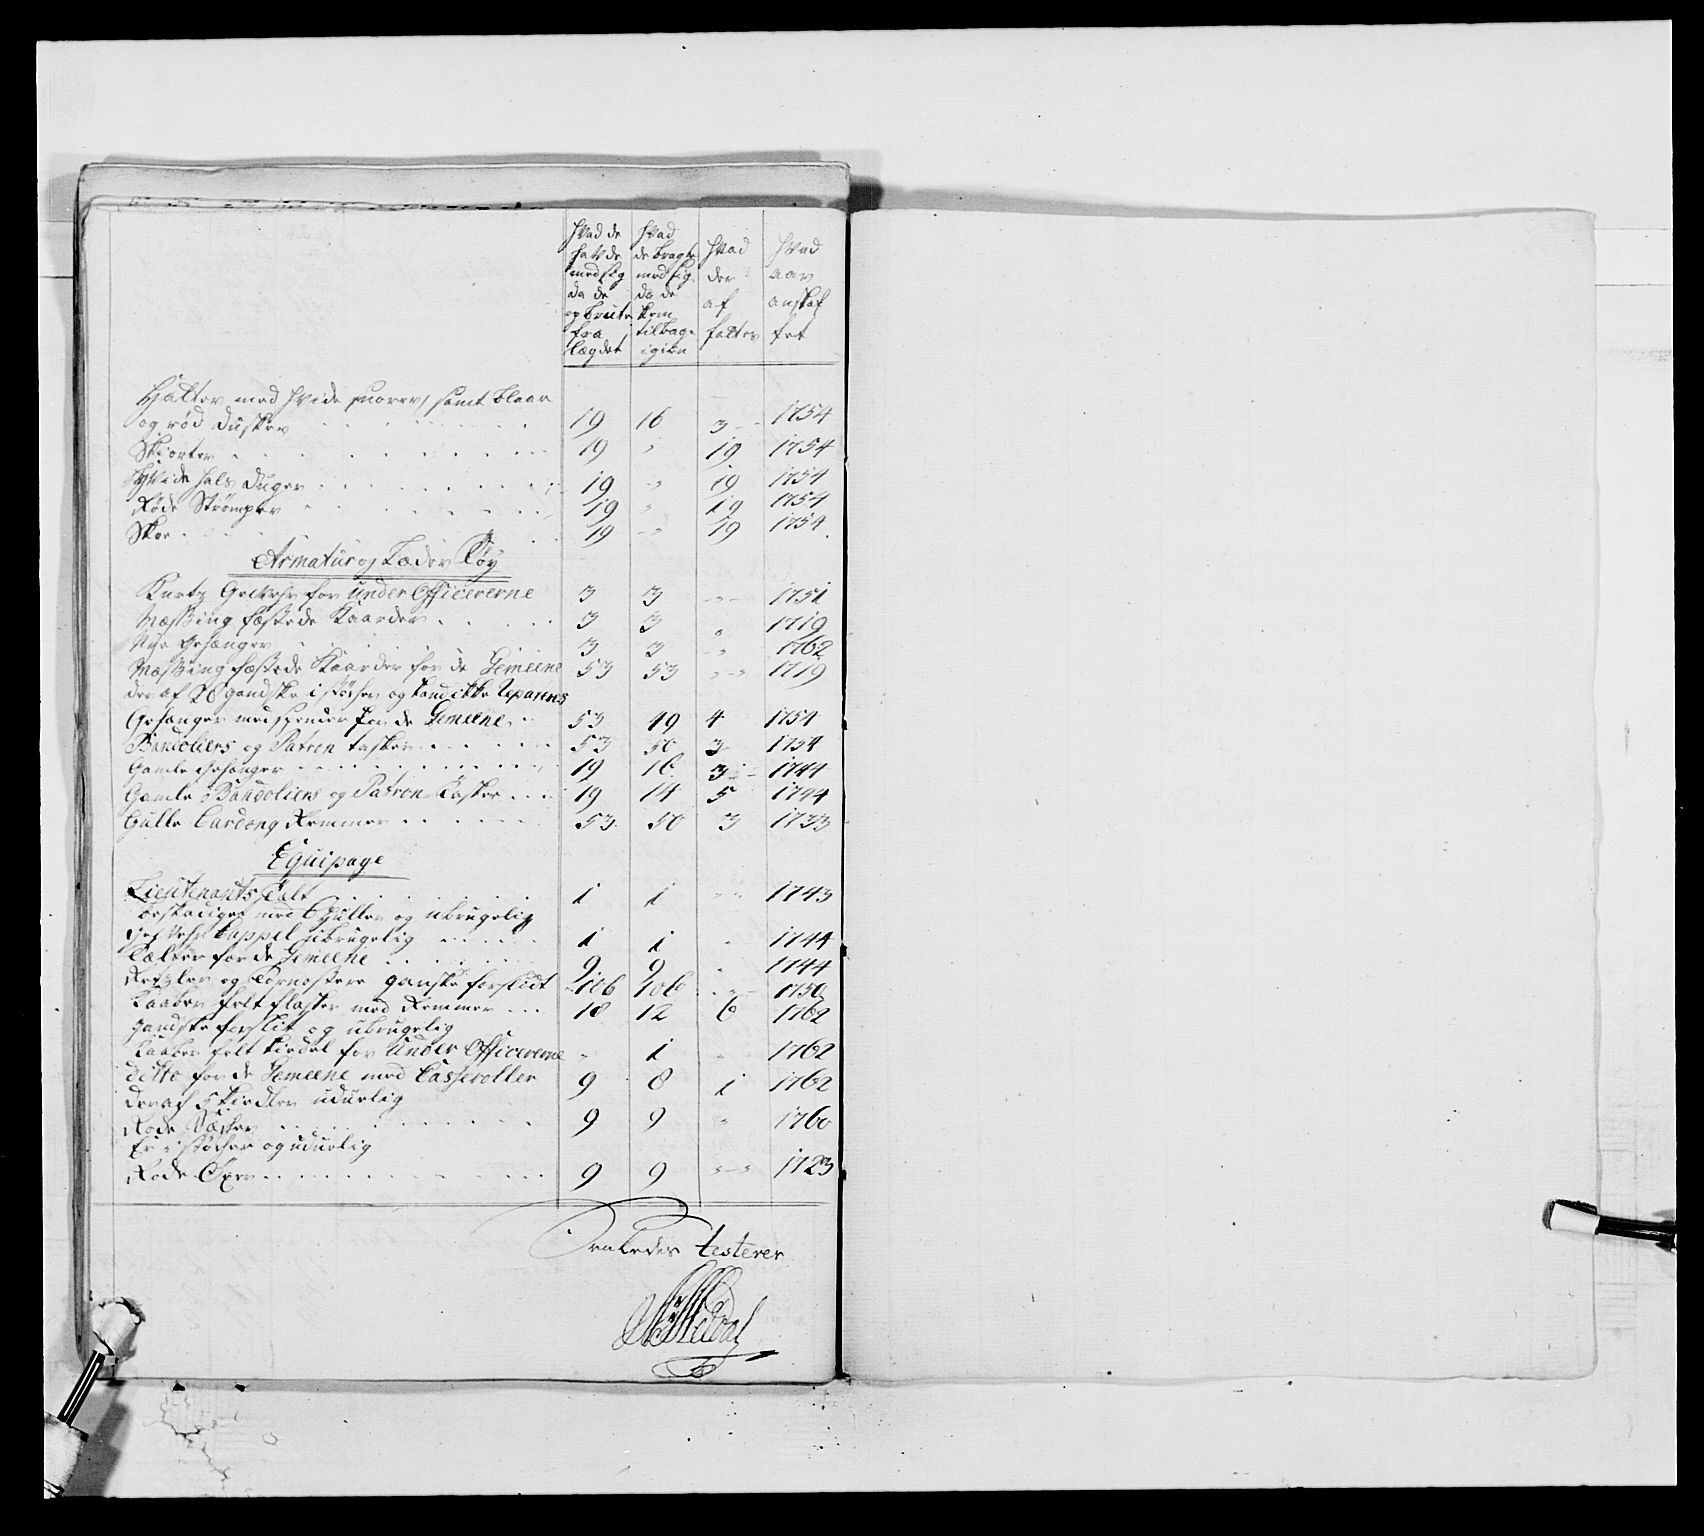 Hvad de havde med sig da de og brute fra lægdet | Hvad de bragte med sig da de kom tilbage igien | Hvad der af fattes | Hvad aar anskaf fet
Hatter med hvide snorer, samt blaae
og rød dusker 19 16 3 1754
Skiorter 19 " 19 1754
Hvide hals duger 19 " 19 1754
Røde Strømper 19 " 19 1754
Skoe 19 " 19 1754
Armatur og Læder Tøy
Kurtz Gevehr for Under Officererne 3 3 " 1751
Messing fæstede Kaarder 3 3 " 1719
Nye Gehænger 3 3 " 1762
Messing fæstede Kaarder for de Gemeene 53 53 " 1719
der af ganske i støcher og kand ikke reparers
Gehænger med spender for de Gemeene 53 49 4 1754
Bandoliers og Patron tasker 53 50 3 1754
Gamle Gehænger 19 16 3 1744
Gamle Bandoliers og Patron Tasker 19 14 5 1744
Gulle Cardong Remmer 53 50 3 1733
Equipage
Lieutenants Tælt 1 1 " 1743
beskadiget med Huller og ubrugelig
Gevehr Cappel ubrugelig 1 1 " 1744
Tælter for de Gemeene 9 9 " 1744
Rentzler og Tornostere ganske forslidt 106 106 " 1750
Kaaber felt flasker med Remmer 18 12 6 1762
ganske forslit og ubrugelig
Kaaber felt kiedel for Under Officererne " 1 " 1762
ditto for de Gemeene med Casseroller 9 8 1 1762
deraf 5 kiedler uduelig
Rode 9 9 " 1760
Er i støcher og uduelig
Rode Øxer 9 9 " 1723
testerer